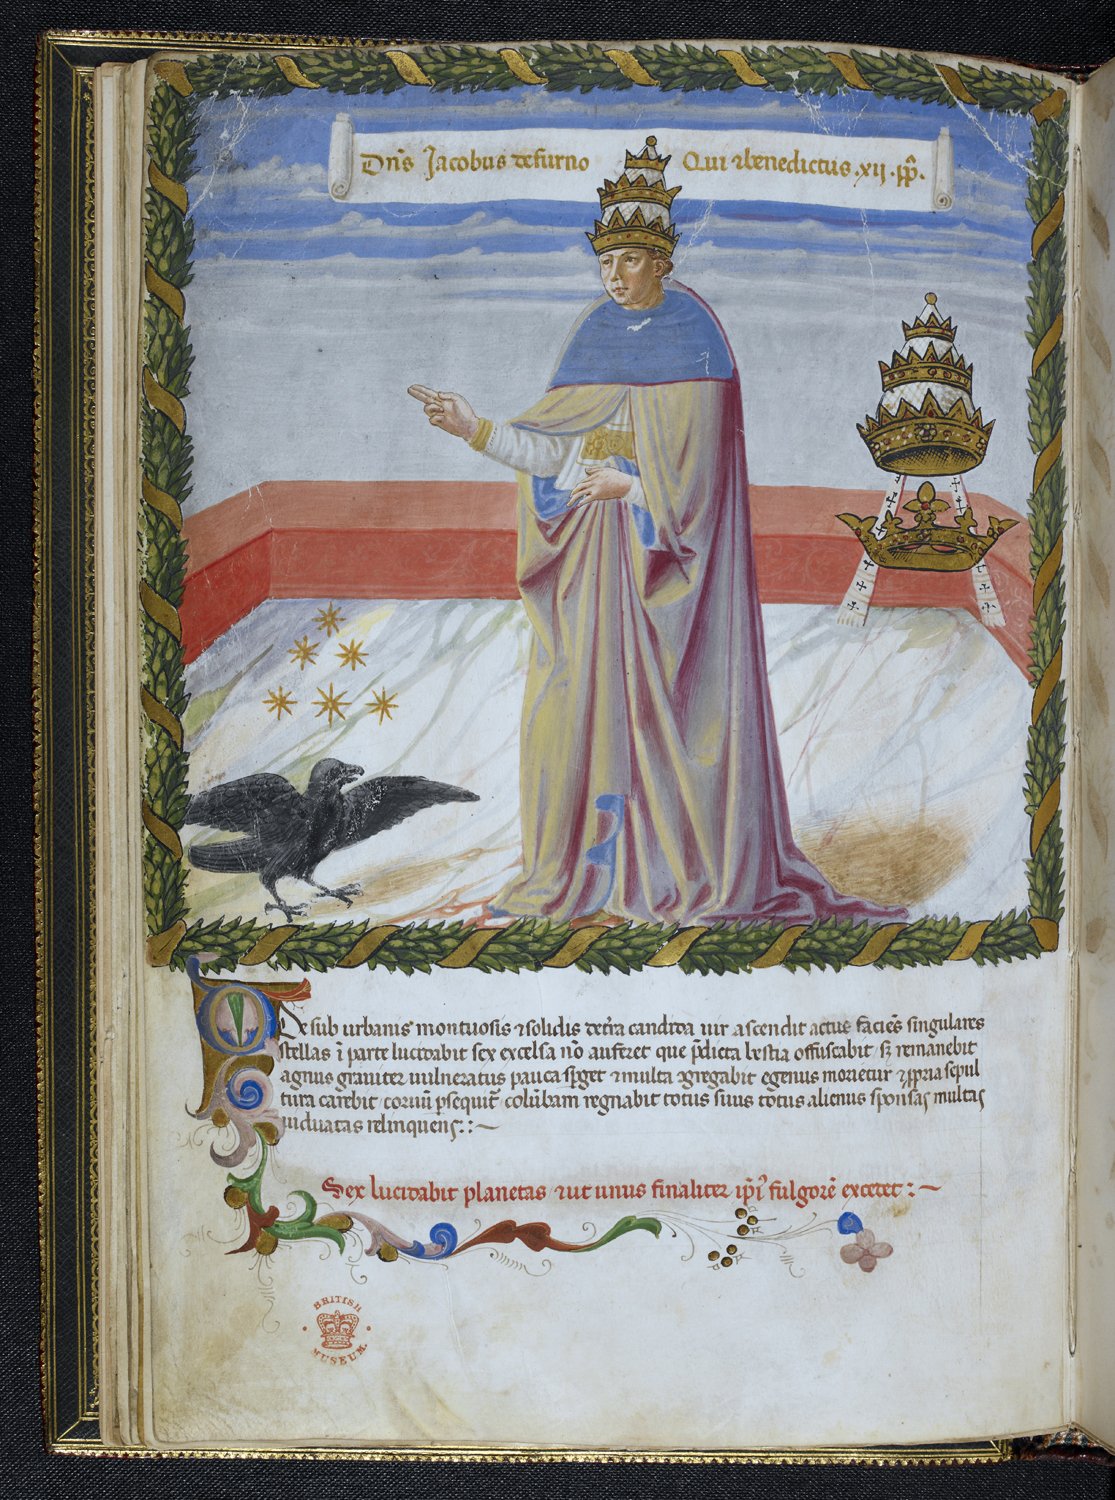 Dn̄s Jacobus defurno Qui ⁊benedictus .xij. pp̄.
De sub urbanis montuosis ⁊solidis detr̄a candida uir ascendit actus facieñs singulares
stellas ī parte lucidabit sex excelsa nō auferet que p̄dicta bestia offuscabit sꝫ remanebit
agnus grauiter uulneratus pauca sp̄get ⁊multa ꝯgregabit egenus morietur ⁊ꝓpria sepul
tura carebit coruū ꝑsequit̄ colūbam regnabit totus suus totus alienus sponsas multas
uiduatas relinquens::~
Sex lucidabit planetas ⁊ut unus finaliter ip̄ī fulgorē excedet:~
BRITISH
MUSEUM